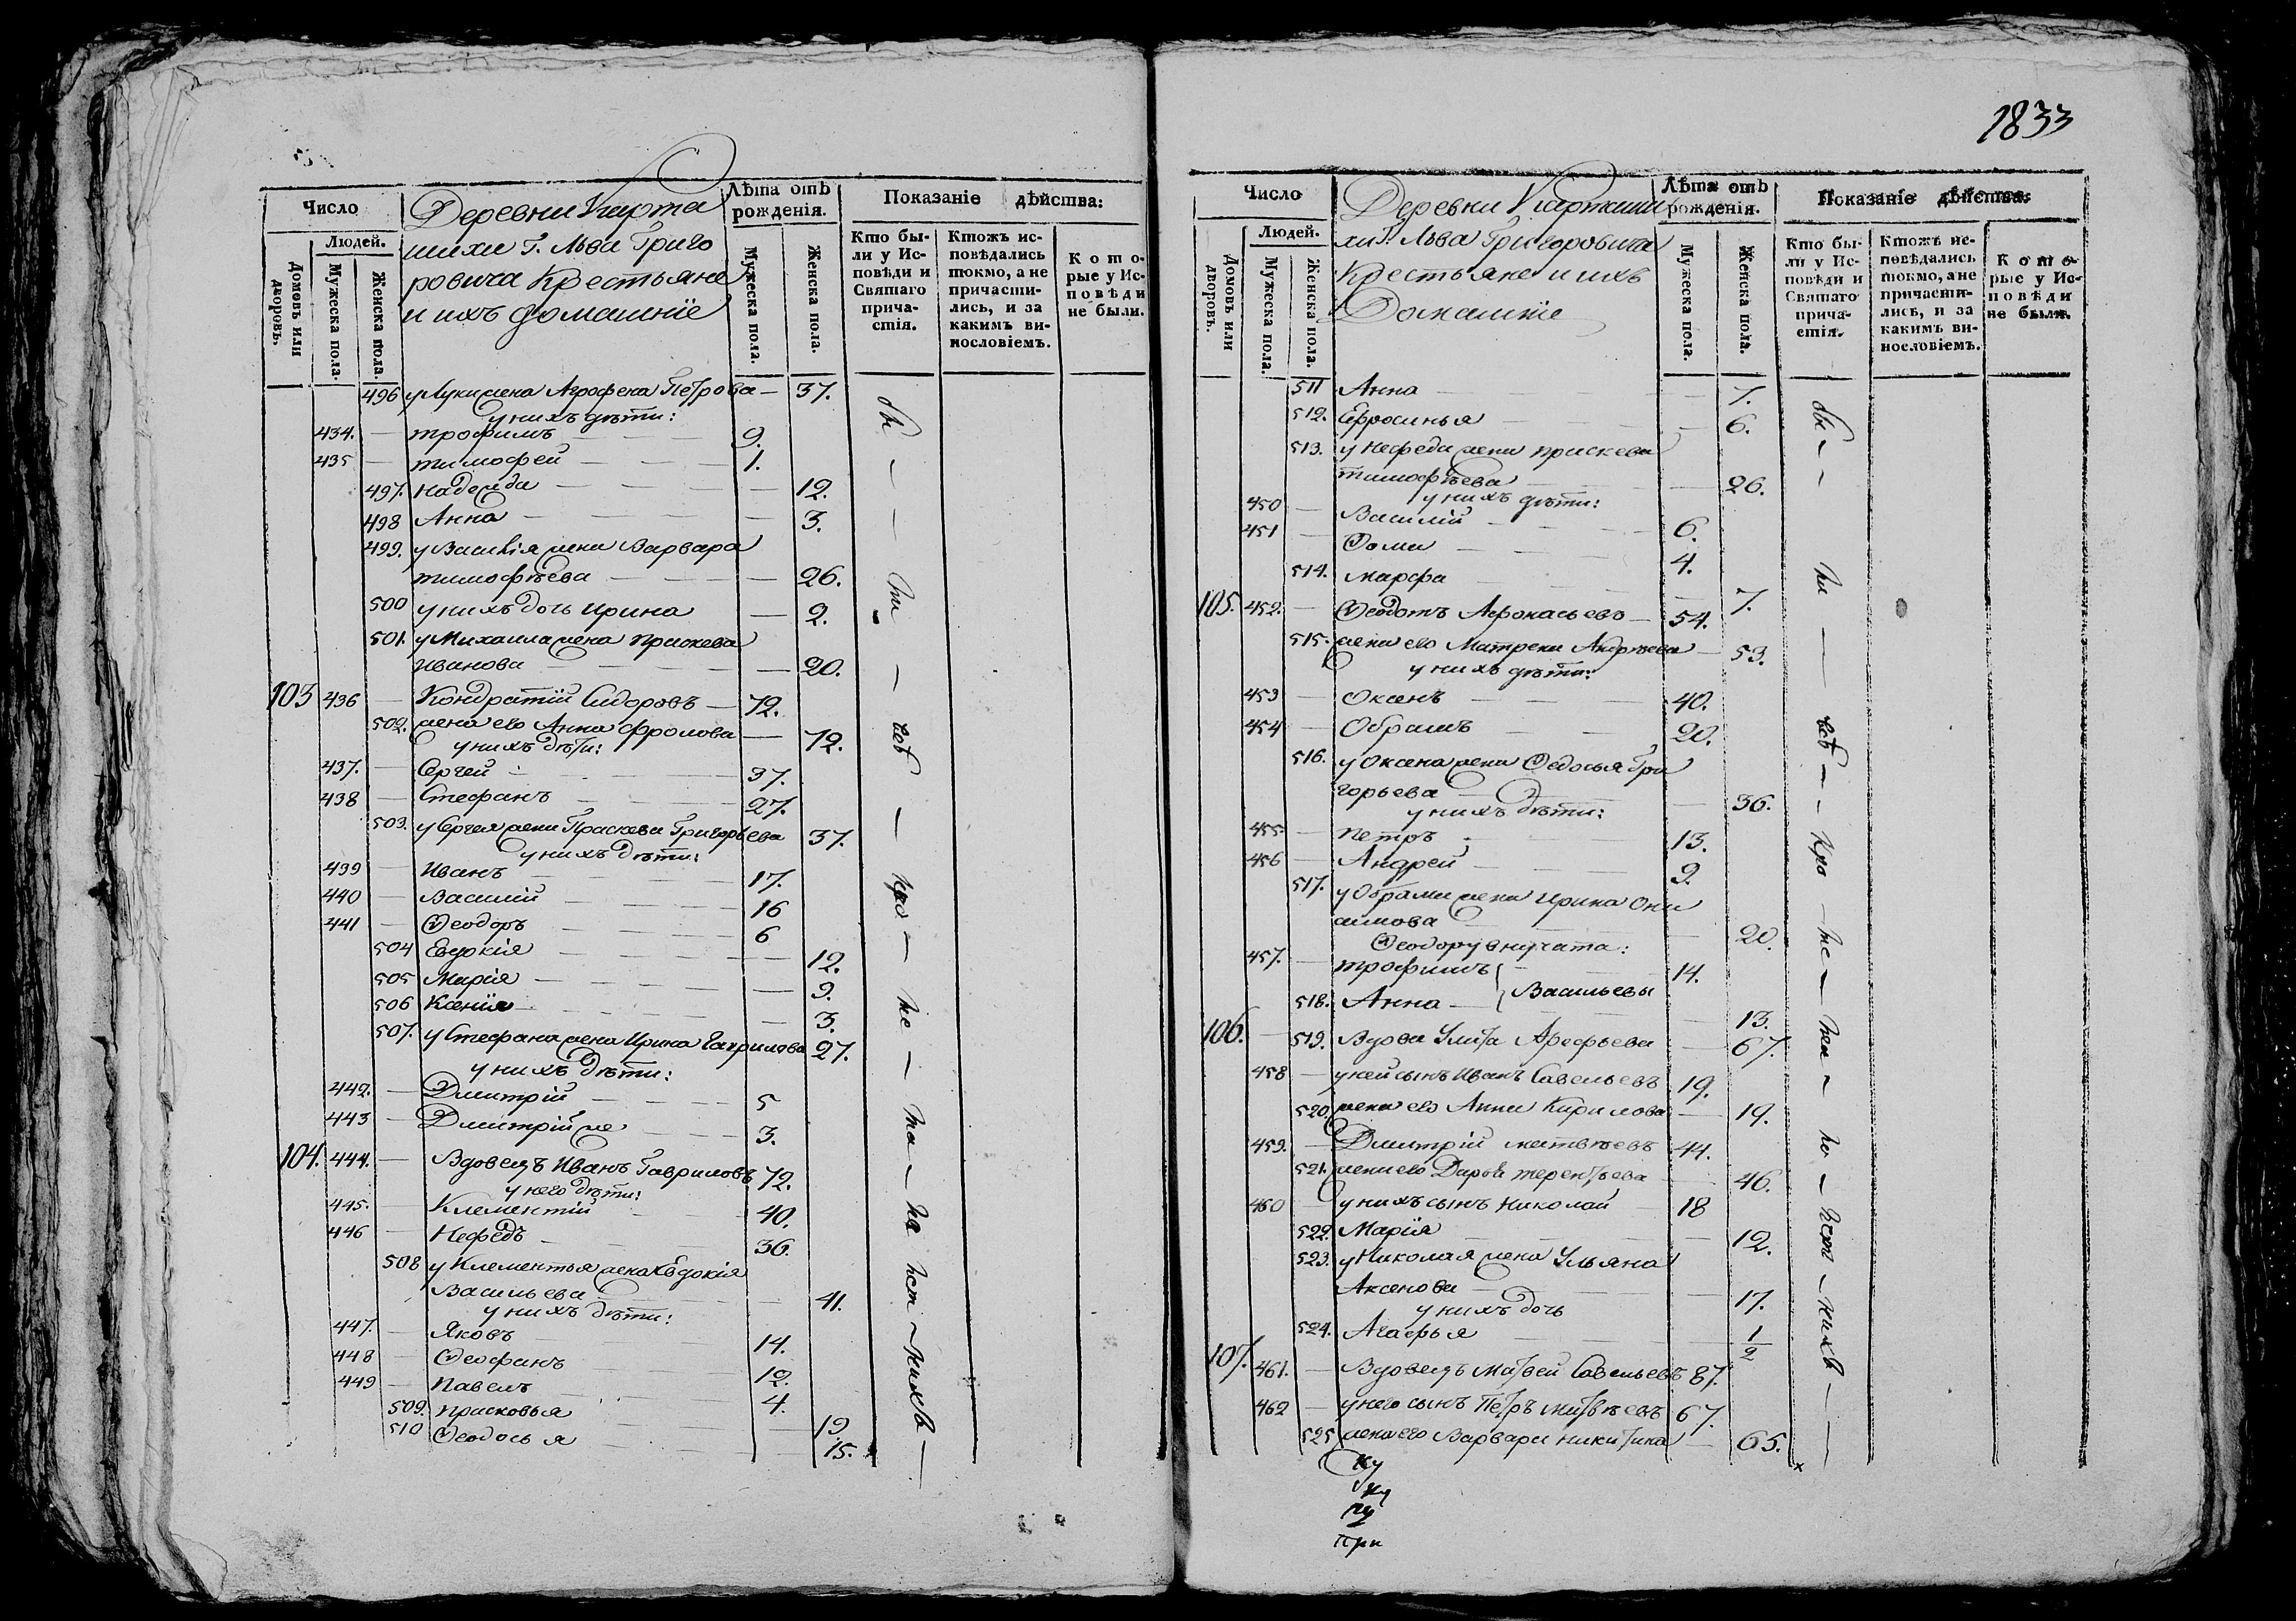 Число
Людей.
Домовъ или дворовъ.
Мужеска пола.
Женска пола.
Деревни Карта
шихи Г. Льва Григо
ровича Крестьяне
и ихъ домашніе
Лѣта отъ рожденія.
Мужеска пола.
Женска пола.
Показаніе дѣйства:
Кто бы-
ли у Ис-
повѣди и
Святаго
прича-
стія.
Ктожъ ис-
повѣдались
токмо, а не
причасти-
лись, и за
какимъ ви-
нословіемъ.
Кото-
рые у Ис-
повѣди
не были.
496 у Луки жена Агрофена Петрова — 37.
у нихъ дѣти:
434. — трофимъ 9.
435 — тимофей 1.
497. Надежда 12.
498 Анна 3.
499. у Василія жена Варвара
тимофѣева 26.
500 у нихъ дочь Ирина 2.
501. у Михаила жена Прискева
Иванова 20.
103 436 — Кондратій Сидоровъ — 72.
502. жена его Анна Фролова — 72.
у нихъ дѣти:
437. — Сергей 37.
438 — Стефанъ 27.
503. у Сергея жена Праскева Григорьева 37.
у нихъ дѣти:
439 — Иванъ 17.
440 — Василій 16
441 — Ѳеодоръ 6
504 Евдокія 12.
505 Марія 9.
506 Ксенія 3.
507. у Стефана жена Ирина Гаврилова 27.
у нихъ дѣти:
442. — Дмитрій 5
443 — Дмитрій же 3.
104. 444. — Вдовецъ Иванъ Гавриловъ 72.
у него дѣти:
445. — Клементій 40.
446 — Нефедъ 36.
508 у Клементья жена Евдокія
Васильева 41.
у нихъ дѣти:
447. — Яковъ 14.
448 — Ѳеофанъ 12.
449 — Павелъ 4.
509. прасковья 19.
510 Ѳеодосья 15.
1833
Число
Людей.
Домовъ или дворовъ.
Мужеска пола.
Женска пола.
Деревни Карташи
хи Г. Льва Григоровича
Крестьяне и ихъ
Домашніе
Лѣта отъ рожденія.
Мужеска пола.
Женска пола.
Показаніе дѣйства:
Кто бы-
ли у Ис-
повѣди и
Святаго
прича-
стія.
Ктожъ ис-
повѣдались
токмо, а не
причасти-
лись, и за
какимъ ви-
нословіемъ.
Кото-
рые у Ис-
повѣди
не были.
511 Анна 7.
512. Ефросинья 6.
513. у Нефеда жена прискева
тимофѣева 26.
у нихъ дѣти:
450 — Василій 6.
451 — Ѳома 4.
514. марфа 7.
105. 452. — Ѳеодотъ Афонасьевъ — 54.
515. жена его Матрена Андреева 53.
у нихъ дѣти:
453 — Оксенъ 40.
454 — Обрамъ 20.
516. у Оксена жена Ѳедосья Гри
горьева 36.
у нихъ дѣти:
455 — петръ 13.
456 — Андрей 9.
517. у Обрама жена Ирина Они
симова 20.
Ѳеодоту внучата:
457. — трофимъ 14.
Васильевы
518. Анна 13.
106. — 519. Вдова Улита Арефьева 67.
458 — у ней сынъ Иванъ Савельевъ 19.
520. жена его Анна Кирилова — 19.
459. — Дмитрій матвѣевъ 44.
521. жена его Дарья терентьева 46.
460 — у нихъ сынъ Николай 18
522. Марія 12.
523. у Николая жена Ульяна
Аксенова 17.
у нихъ дочь
524. Агафья 1/2
107. 461. — Вдовецъ Матвей Савельевъ 87.
462 — у него сынъ Петръ матвѣевъ 67.
525 жена его Варвара никитина 65.
ку
ну
при